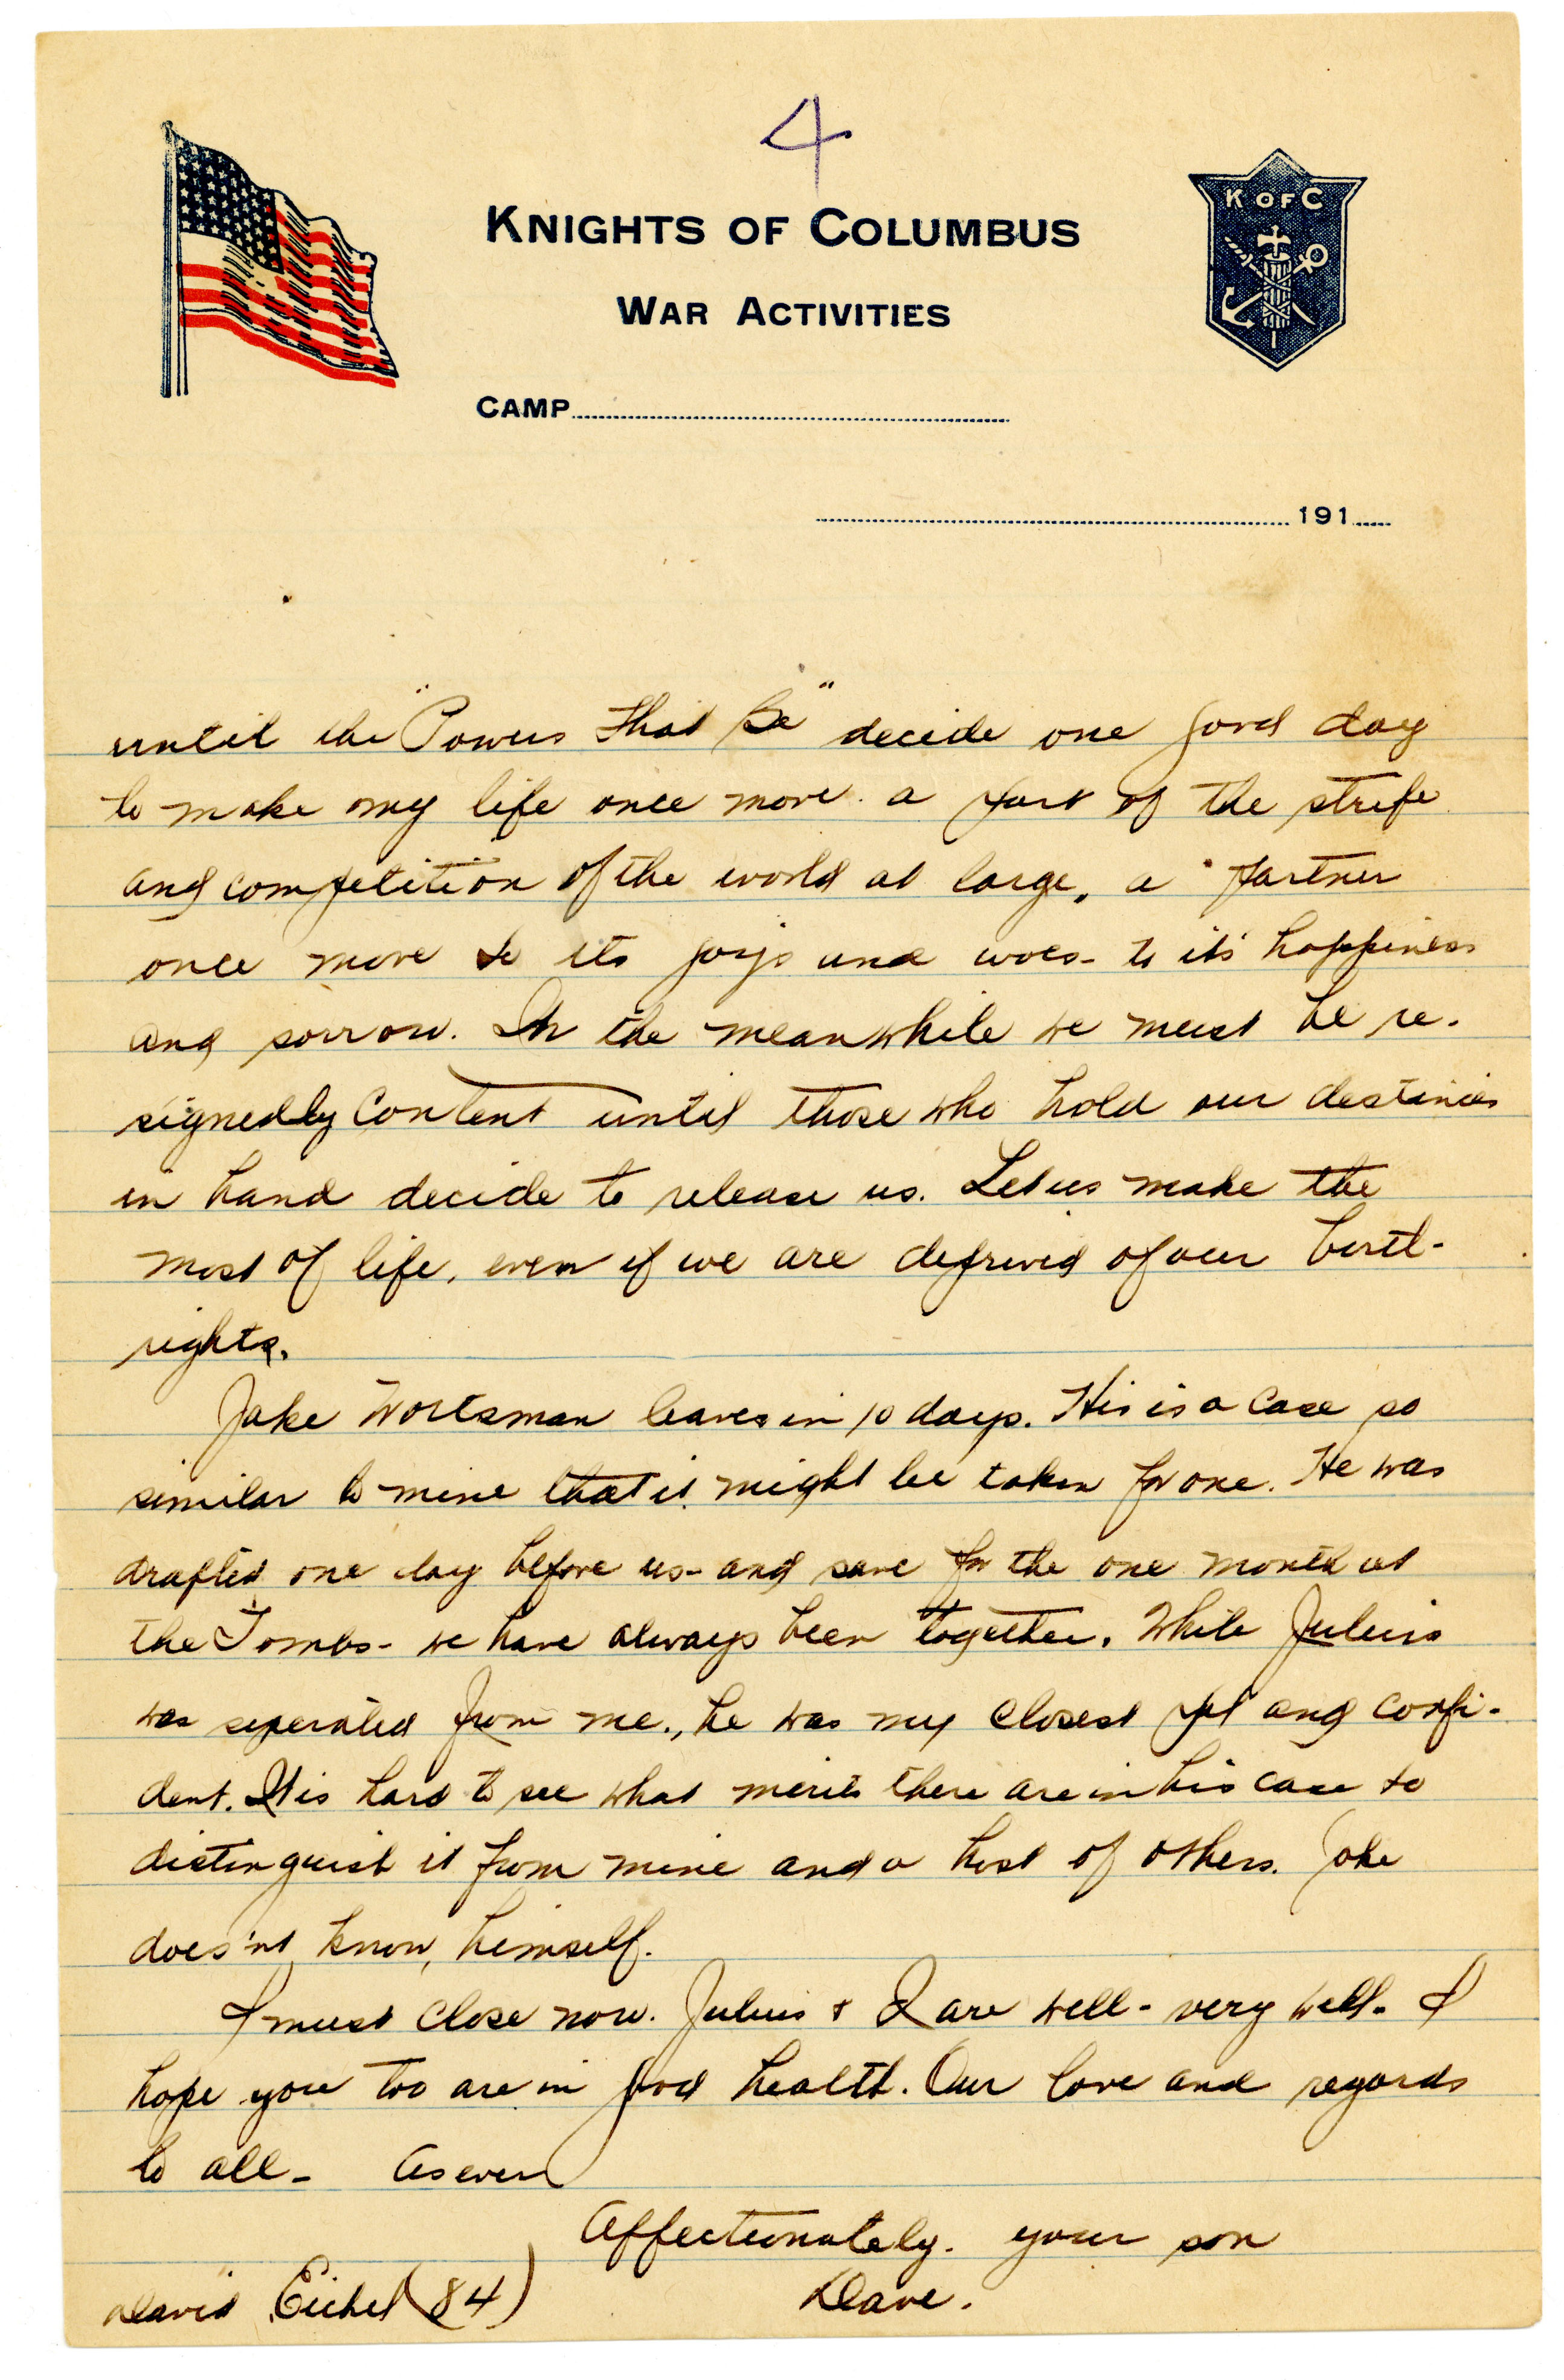 4
KNIGHTS OF COLUMBUS
K OF C
WAR ACTIVITIES
CAMP
191
until the "Powers That Be" decide one good day
to make my life once more a part of the strife
and competition of the world at large, a partner
once more to its joys and woes - to its' happiness
and sorrow. In the meanwhile we must be re-
signedly content until those who hold our destinies
in hand decide to release us. Let us make the
most of life, even if we are deprived of our birth-
rights.
Jake Wortsman leaves in 10 days. His is a case so
similar to mine that it might be taken for one. He was
drafted one day before us - and save for the one month at
the Tombs - we have always been together. While Julius
was seperated from me, he was my closest pal and confi-
dent. It is hard to see what merits there are in his case to
distinguish it from mine and a host of others. Jake
does'nt know, himself.
I must close now. Julius & I are well - very well. I
hope you too are in good health. Our love and regards
to all - As ever
Affectionately. your son
Dave.
David Eichel (84)